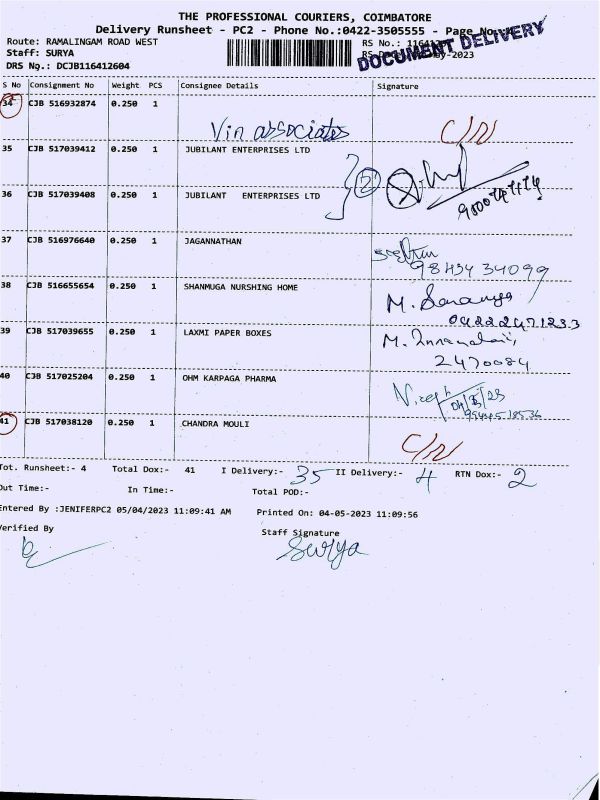 THE PROFESSIONAL COURIERS, COIMBATORE
Delivery Runsheet - PC2 - Phone No.:0422-3505555 - Page No
DOCUMENT DELIVERY
Route: RAMALINGAM ROAD WEST
RS No.:
Staff: SURYA
-2023
DRS No.: DCJB116412604
S No Consignment No Weight PCS Consignee Details Signature
34 CJB 516932874 0.250 1 Vin associates C/N
35 CJB 517039412 0.250 1 JUBILANT ENTERPRISES LTD
36 CJB 517039408 0.250 1 JUBILANT ENTERPRISES LTD
37 CJB 516976640 0.250 1 JAGANNATHAN
98434 34099
38 CJB 516655654 0.250 1 SHANMUGA NURSHING HOME M.
39 CJB 517039655 0.250 1 LAXMI PAPER BOXES M.
2470084
40 CJB 517025204 0.250 1 OHM KARPAGA PHARMA
41 CJB 517038120 0.250 1 CHANDRA MOULI C/N
Tot. Runsheet:- 4 Total Dox:- 41 I Delivery:- 35 II Delivery:- 4 RTN Dox:- 2
Out Time:- In Time:- Total POD:-
Entered By :JENIFERPC2 05/04/2023 11:09:41 AM Printed On: 04-05-2023 11:09:56
Verified By Staff Signature
Surya